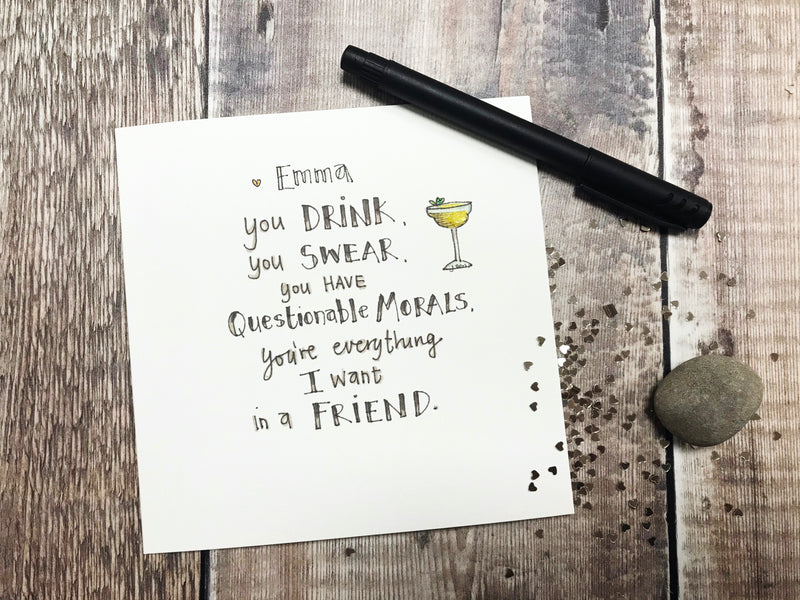 Emma
you DRINK.
you SWEAR.
you HAVE
Questionable MORALS.
you're everything
I want
in a FRIEND.